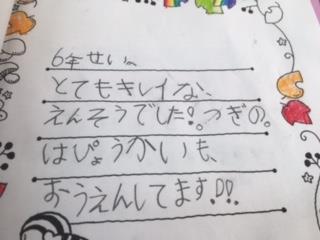 6年せいへ
とてもキレイな、
えんそうでした!。つぎの。
はぴょうかいも、
おうえんしてます。!!